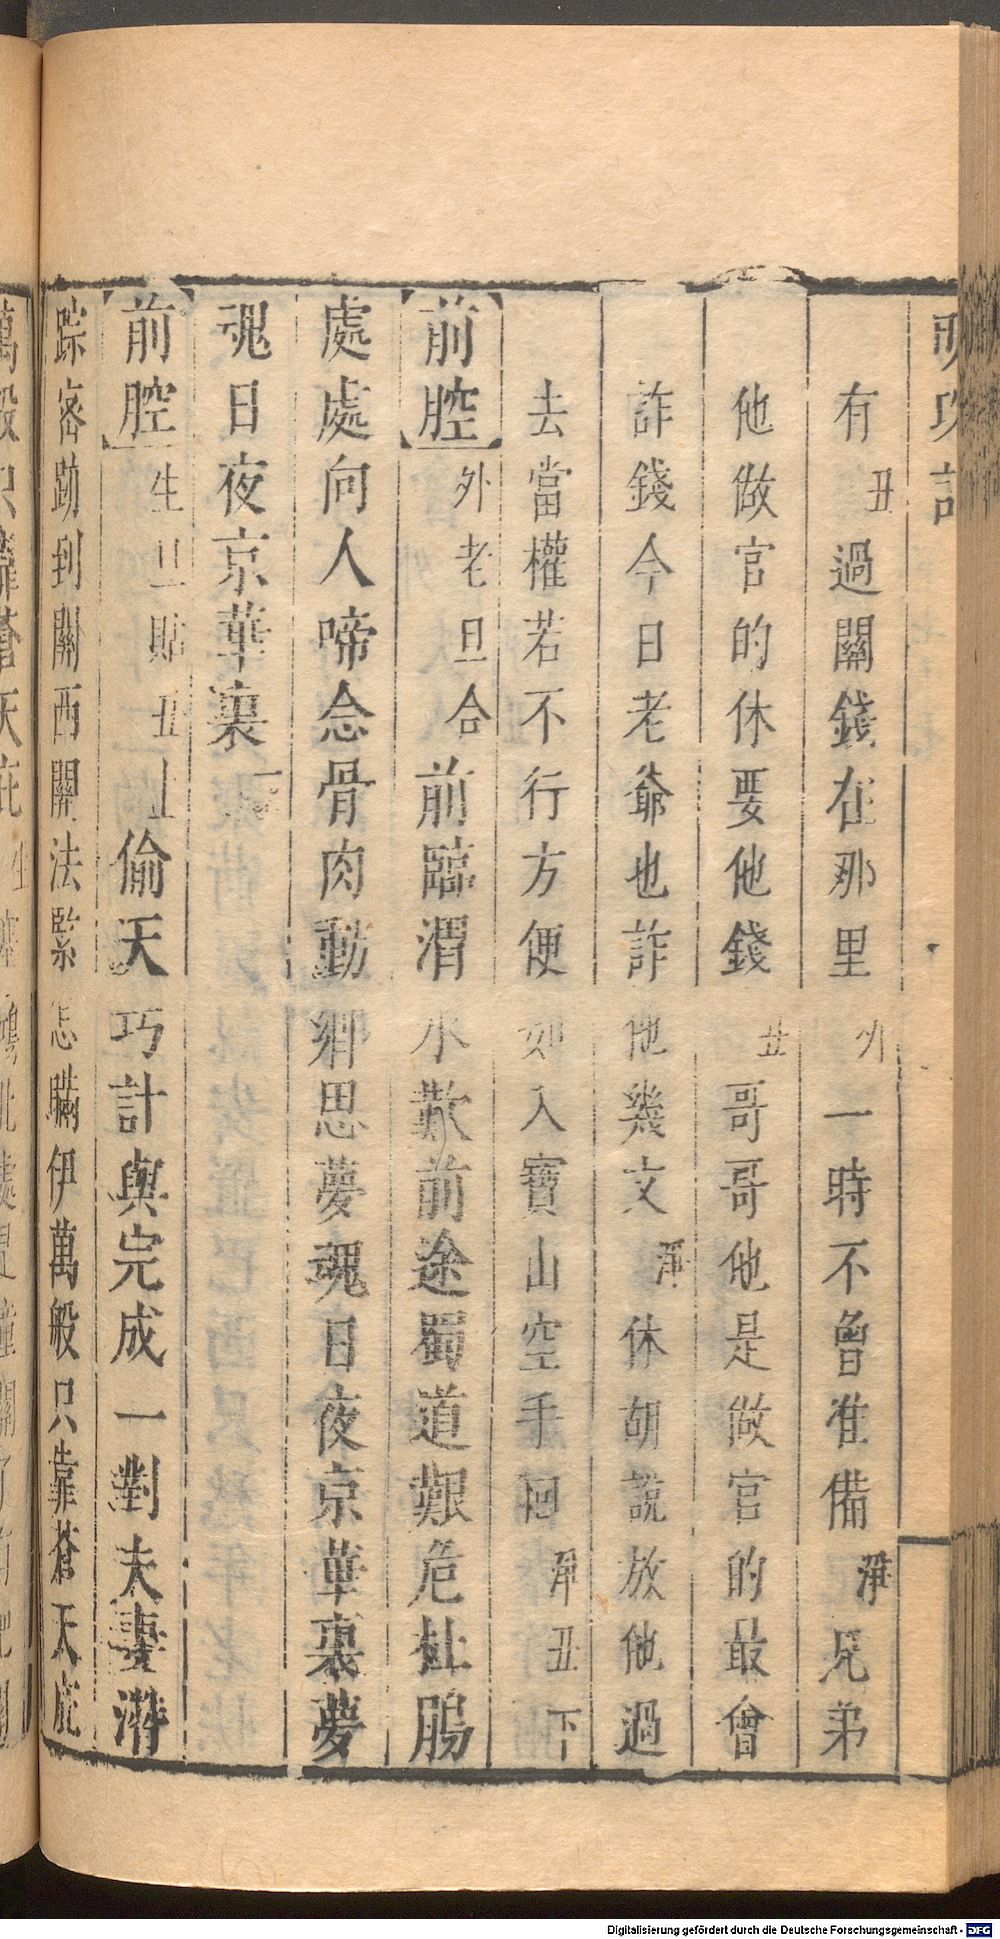 有丑過關錢在那里外一時不曾准備淨兄弟
他做官的休要他錢丑哥哥他是做官的最會
詐錢今日老爺也詐他幾文淨休胡說放他過
去當權若不行方便如入寶山空手回淨丑下
【前腔】外老旦合前臨渭水歎前途蜀道艱危杜鵑
處處向人啼念骨肉動鄉思夢魂日夜京華裏夢
魂日夜京華裏下
【前腔】生旦貼丑上偷天巧計與完成一對夫妻潛
踪密跡到關西關法緊怎瞞伊萬般只靠蒼天庇
萬般只靠蒼天庇
Digitalisierung gefördert durch die Deutsche Forschungsgemeinschaft - DFG